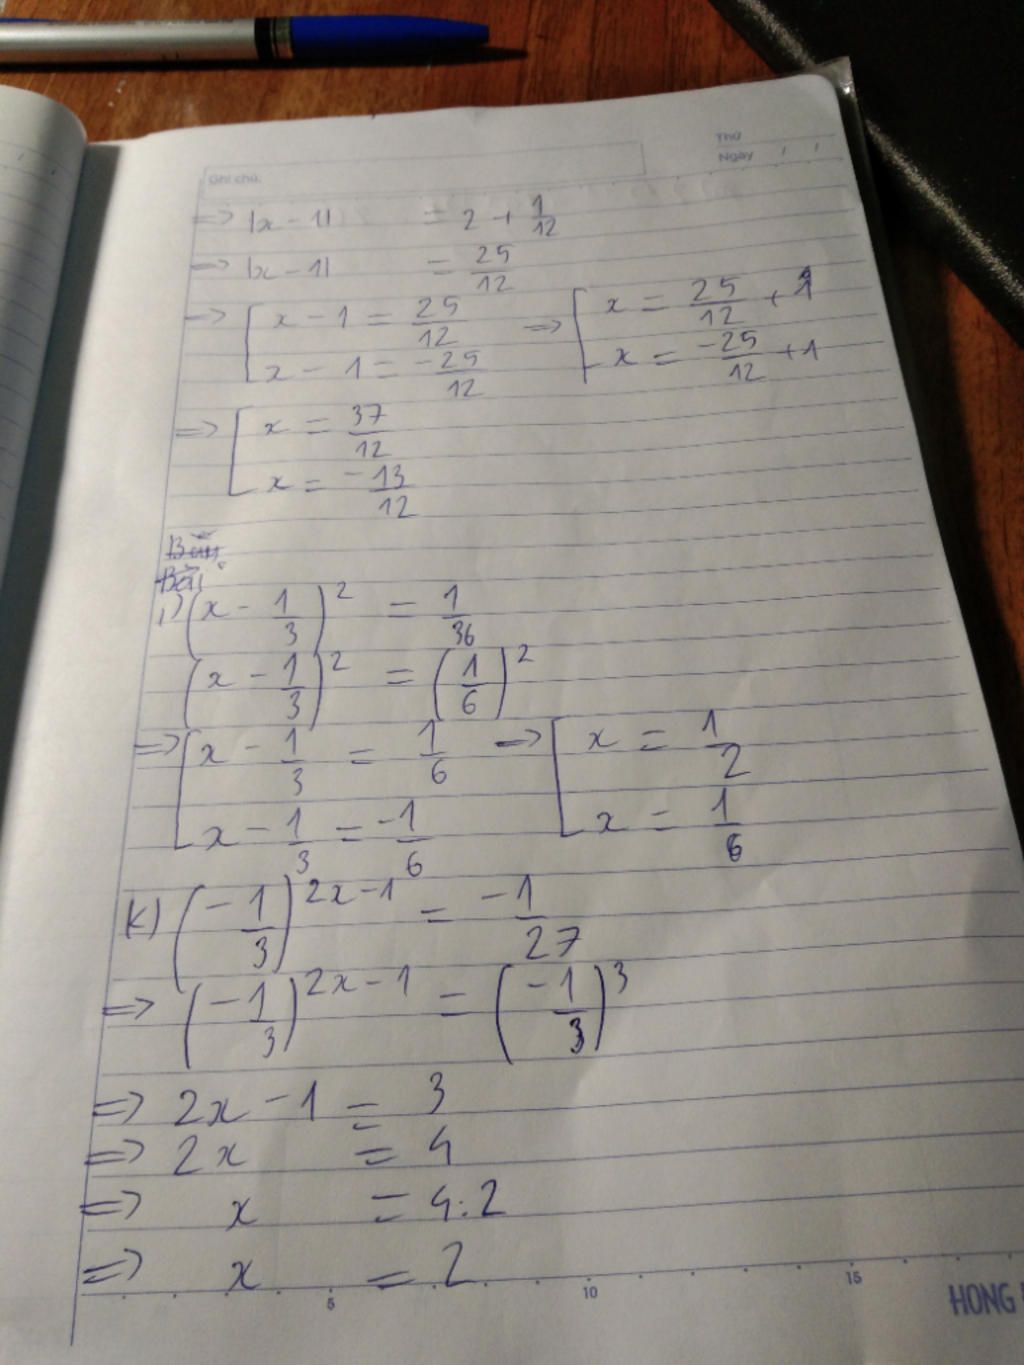 Thứ
Ngày / /
Ghi chú:
=> |x - 1| = 2 + 1/12
=> |x - 1| = 25/12
=> [ x - 1 = 25/12 => [ x = 25/12 + 1
x - 1 = -25/12 x = -25/12 + 1
=> [ x = 37/12
x = -13/12
Bài
i) (x - 1/3)² = 1/36
(x - 1/3)² = (1/6)²
=> [ x - 1/3 = 1/6 => [ x = 1/2
x - 1/3 = -1/6 x = 1/6
k) (-1/3)^(2x-1) = -1/27
=> (-1/3)^(2x-1) = (-1/3)³
=> 2x - 1 = 3
=> 2x = 4
=> x = 4:2
=> x = 2
5 10 15
HONG